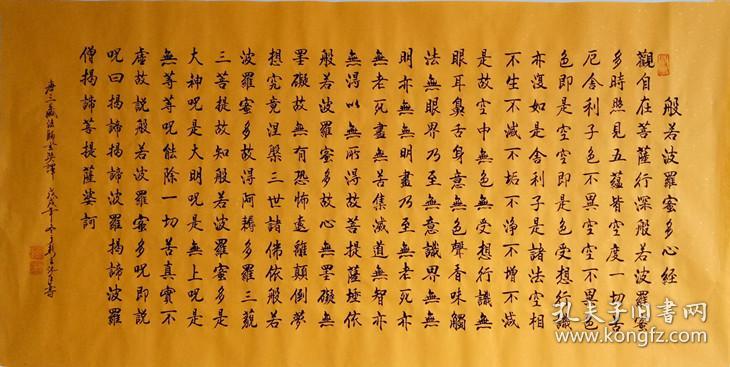 般若波羅蜜多心經
觀自在菩薩行深般若波羅蜜
多時照見五蘊皆空度一切苦
厄舍利子色不異空空不異色
色即是空空即是色受想行識
亦復如是舍利子是諸法空相
不生不滅不垢不淨不增不減
是故空中無色無受想行識無
眼耳鼻舌身意無色聲香味觸
法無眼界乃至無意識界無無
明亦無無明盡乃至無老死亦
無老死盡無苦集滅道無智亦
無得以無所得故菩提薩埵依
般若波羅蜜多故心無罣礙無
罣礙故無有恐怖遠離顛倒夢
想究竟涅槃三世諸佛依般若
波羅蜜多故得阿耨多羅三藐
三菩提故知般若波羅蜜多是
大神呪是大明呪是無上呪是
無等等呪能除一切苦真實不
虛故説般若波羅蜜多呪即説
呪曰揭諦揭諦波羅揭諦波羅
僧揭諦菩提薩婆訶
唐三藏法師玄奘譯 戊戌年
孔夫子旧书网
kongfz.com